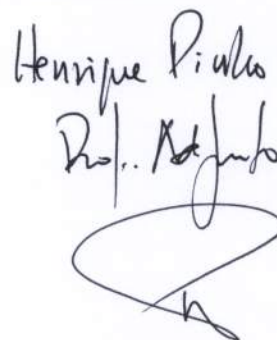 Henrique Pinho
Prof. Adjunto